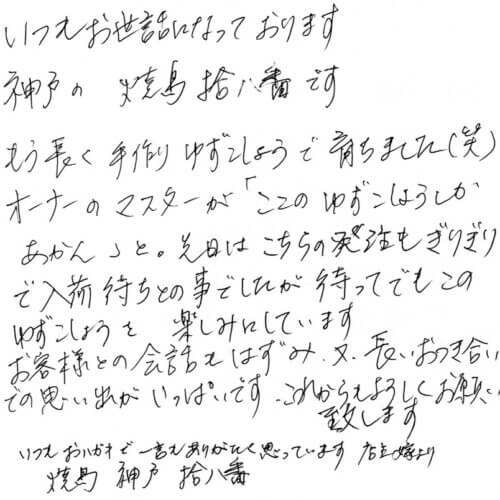 いつもお世話になっております
神戸の 焼鳥 拾八番です
もう長く 手作り ゆずこしょうで 育ちました(笑)
オーナーの マスターが「ここの ゆずこしょうしか
あかん」と。先日は こちらの発注も ぎりぎり
で入荷待ちとの事でしたが 待ってでもこの
ゆずこしょうを 楽しみにしています
お客様との 会話も はずみ、又、長いおつき合い
での思い出が いっぱいです。これからもよろしくお願い
致します
いつも おハガキで 一言もありがたく思っています 店主嫁より
焼鳥 神戸 拾八番